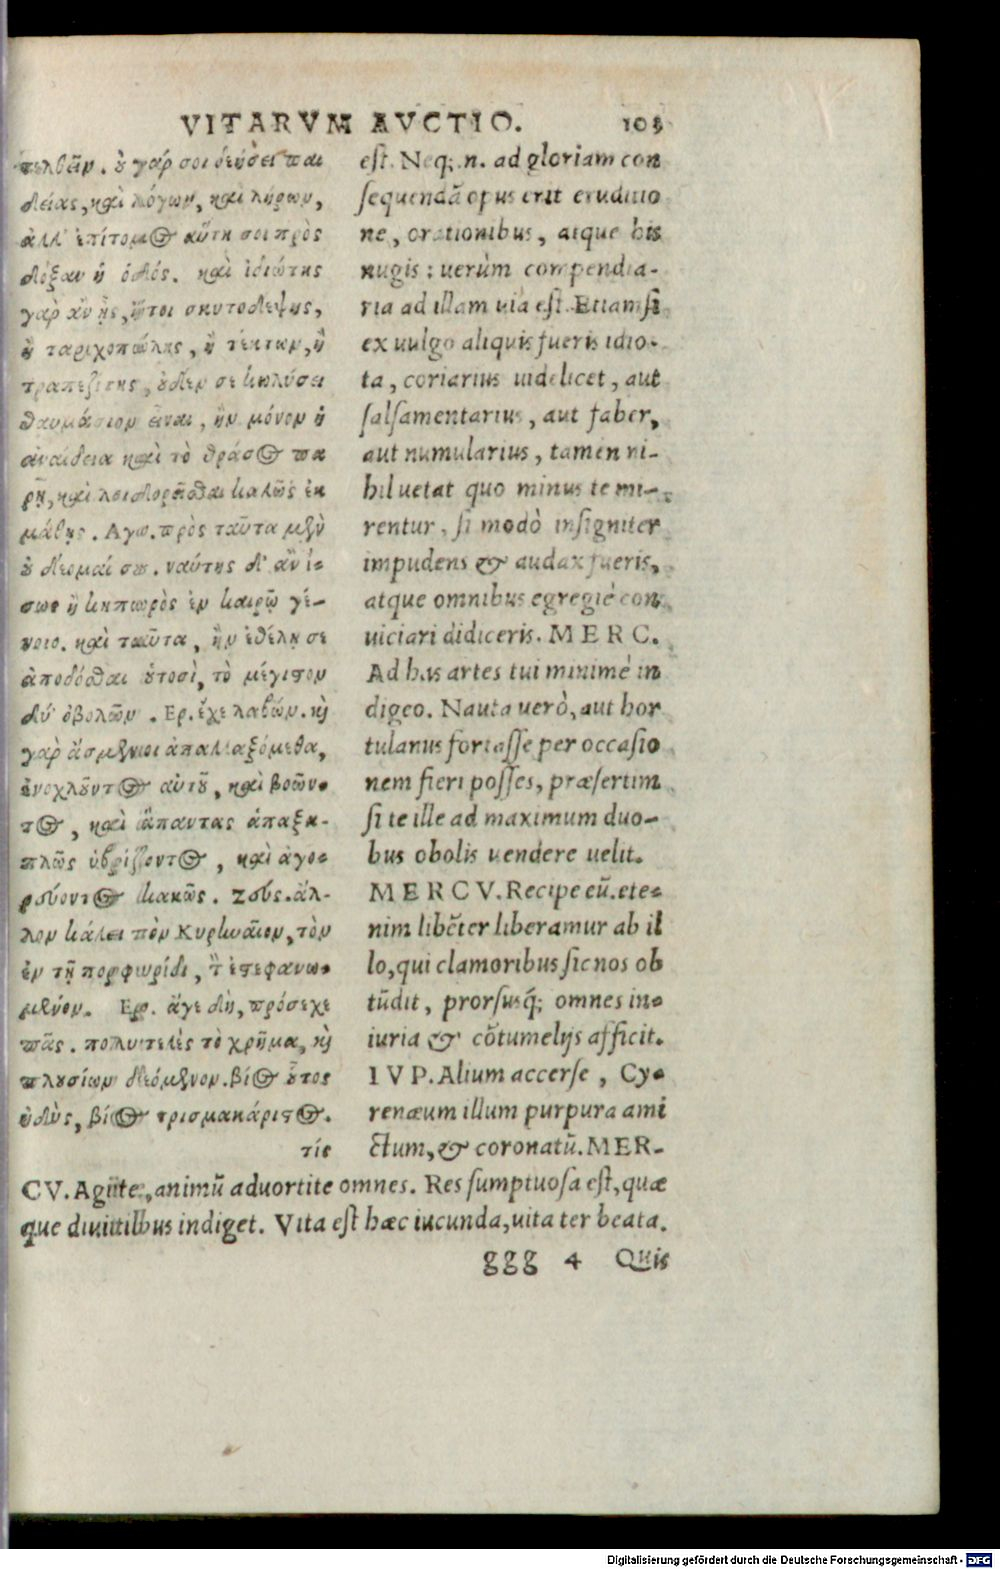 VITARVM AVCTIO. 103
πελθεῖν. οὐ γάρ σοι δεήσει παι
δείας, καὶ λόγων, καὶ λήρων,
ἀλλ' ἐπίτομος αὕτη σοι πρὸς
δόξαν ἡ ὁδός. καὶ ἰδιώτης
γὰρ ἂν ᾖς, ἤτοι σκυτοδέψης,
ἢ ταριχοπώλης, ἢ τέκτων, ἢ
τραπεζίτης, οὐδέν σε κωλύσει
θαυμάσιον εἶναι, ἢν μόνον ἡ
ἀναίδεια καὶ τὸ θράσος πα
ρῇ, καὶ λοιδορεῖσθαι καλῶς ἐκ
μάθῃς. Αγο. πρὸς ταῦτα μὲν
οὐ δέομαί σου. ναύτης δ' ἂν ἴ-
σως ἢ κηπωρὸς ἐν καιρῷ γέ-
νοιο. καὶ ταῦτα, ἢν ἐθέλῃ σε
ἀποδόσθαι οὑτοσὶ, τὸ μέγιστον
δύ' ὀβολῶν. Ερ. ἔχε λαβών. καὶ
γὰρ ἄσμενοι ἀπαλλαξόμεθα,
ἐνοχλοῦντος αὐτοῦ, καὶ βοῶν-
τος, καὶ ἅπαντας ἁπαξα-
πλῶς ὑβρίζοντος, καὶ ἀγο-
ρεύοντος κακῶς. Ζεύς. ἄλ-
λον κάλει τὸν Κυρηναῖον, τὸν
ἐν τῇ πορφυρίδι, τὸν ἐστεφανω-
μένον. Ερ. ἄγε δὴ, πρόσεχε
πᾶς. πολυτελὲς τὸ χρῆμα, καὶ
πλουσίων δεόμενον. βίος οὗτος
ἡδὺς, βίος τρισμακάριστος.
τίς
est. Neq; .n. ad gloriam con
sequendā opus erit eruditio
ne, orationibus, atque his
nugis: uerùm compendia-
ria ad illam uia est. Etiam si
ex uulgo aliquis fueris idio-
ta, coriarius uidelicet, aut
salsamentarius, aut faber,
aut numularius, tamen ni-
hil uetat quo minus te mi-
rentur, si modò insigniter
impudens & audax fueris,
atque omnibus egregiè con
uiciari didiceris. MERC.
Ad has artes tui minimè in
digeo. Nauta uerò, aut hor
tulanus fortasse per occasio
nem fieri posses, præsertim
si te ille ad maximum duo-
bus obolis uendere uelit.
MERCV. Recipe eū. ete-
nim libēter liberamur ab il
lo, qui clamoribus sic nos ob
tūdit, prorsusq́; omnes in-
iuria & cōtumelijs afficit.
IVP. Alium accerse, Cy-
renæum illum purpura ami
ctum, & coronatū. MER-
CV. Agite, animū aduortite omnes. Res sumptuosa est, quæ
que diuitibus indiget. Vita est hæc iucunda, uita ter beata.
ggg 4 Quis
Digitalisierung gefördert durch die Deutsche Forschungsgemeinschaft - DFG